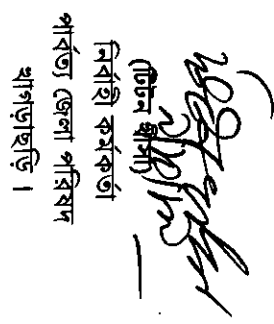 (টিটন খীসা)
নির্বাহী কর্মকর্তা
পার্বত্য জেলা পরিষদ
খাগড়াছড়ি।